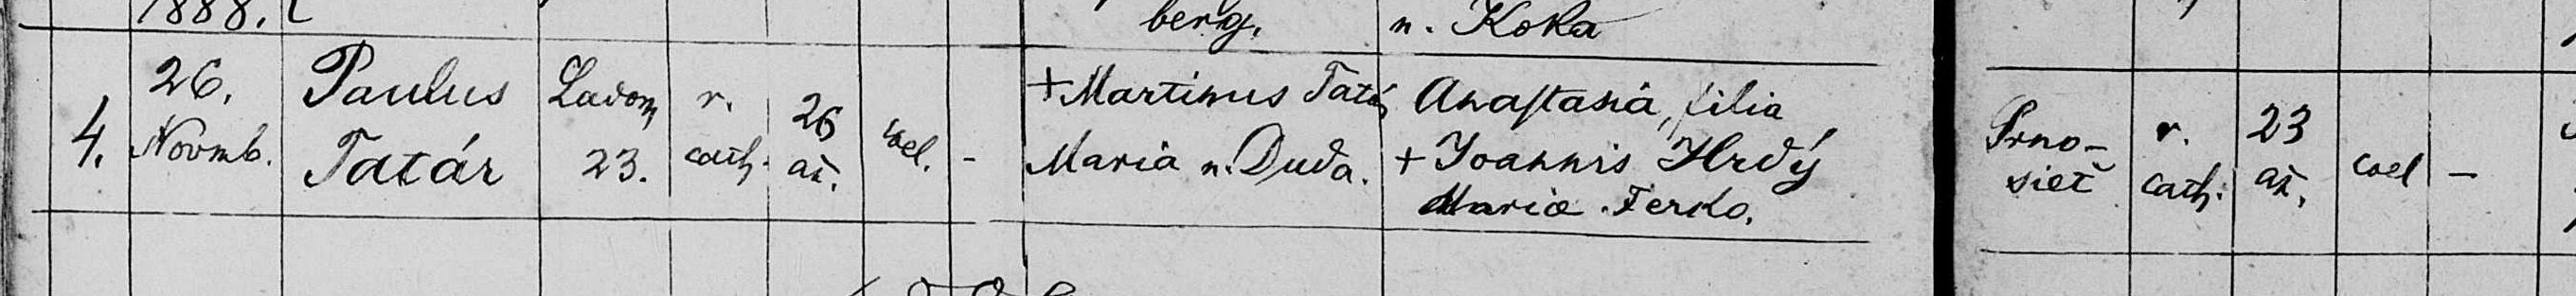 1888.
berg.
n. Koka
4.
26.
Novmb.
Paulus
Tatár
Ladom
23.
r.
cath.
26
an.
coel.
-
+ Martinus Tatár
Maria n. Duda.
Anastasia, filia
+ Joannis Hrdý
Mariae Ferko.
r.
cath.
23
an.
coel
-